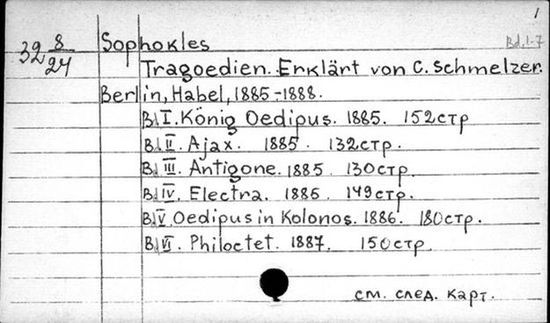 1
32 8/24 Sophokles Bd. 1-7
Tragoedien. Erklärt von C. Schmelzer.
Berlin, Habel, 1885-1888.
Bd I. König Oedipus. 1885. 152стр
Bd II. Ajax. 1885. 132стр.
Bd III. Antigone. 1885. 130стр.
Bd IV. Electra. 1886. 149стр.
Bd V. Oedipus in Kolonos. 1886. 180стр.
Bd VI. Philoctet. 1887. 150стр.
см. след. карт.